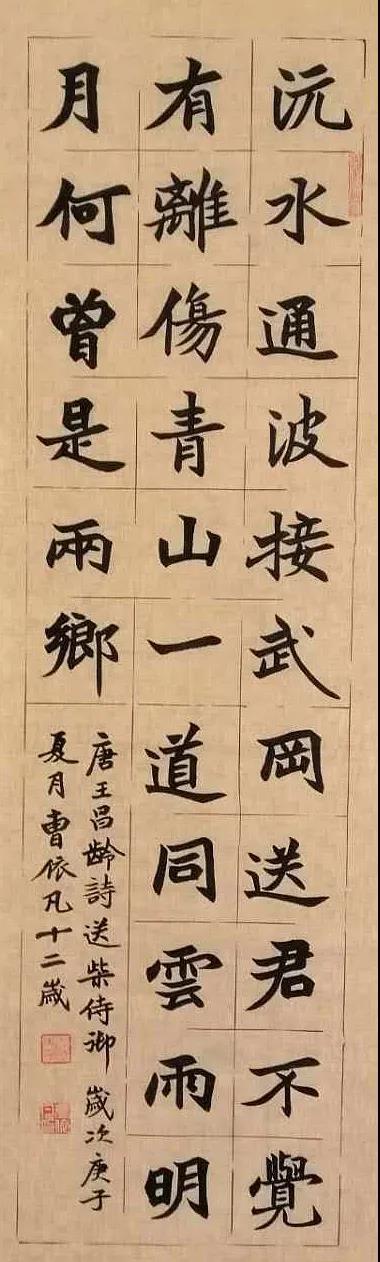 沅水通波接武岡送君不覺
有離傷青山一道同雲雨明
月何曾是兩鄉
唐王昌齡詩送柴侍御 歲次庚子
夏月曹依凡十二歲